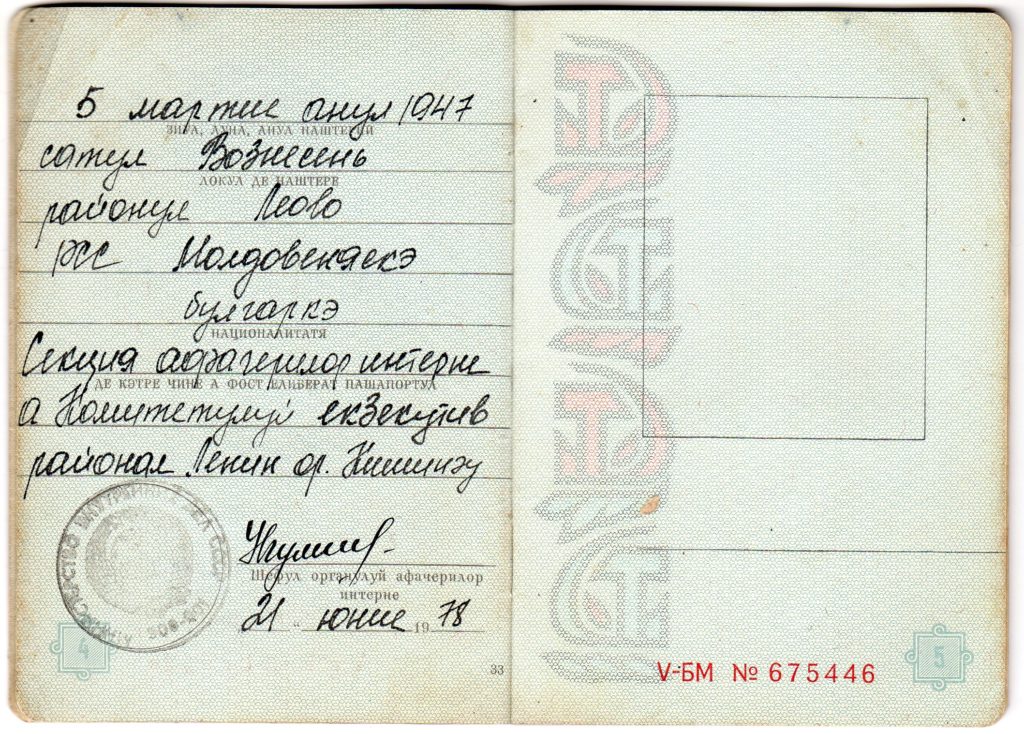 5 мартие анул 1947
ЗИУА, ЛУНА, АНУЛ НАШТЕРИЙ
сатул Вознесень
ЛОКУЛ ДЕ НАШТЕРЕ
районул Леово
РСС Молдовеняскэ
булгаркэ
НАЦИОНАЛИТАТЯ
Секция афачерилор интерне
ДЕ КЭТРЕ ЧИНЕ А ФОСТ ЕЛИБЕРАТ ПАШАПОРТУЛ
а Комитетулуй екзекутив
районал Ленин ор. Кишинэу
МИНИСТЕРСТВО ВНУТРЕННИХ ДЕЛ СССР
Шефул органулуй афачерилор
интерне
„21" юние 1978
4
33
V-БМ № 675446
5